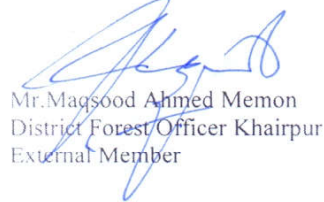 Mr.Maqsood Ahmed Memon
District Forest Officer Khairpur
External Member